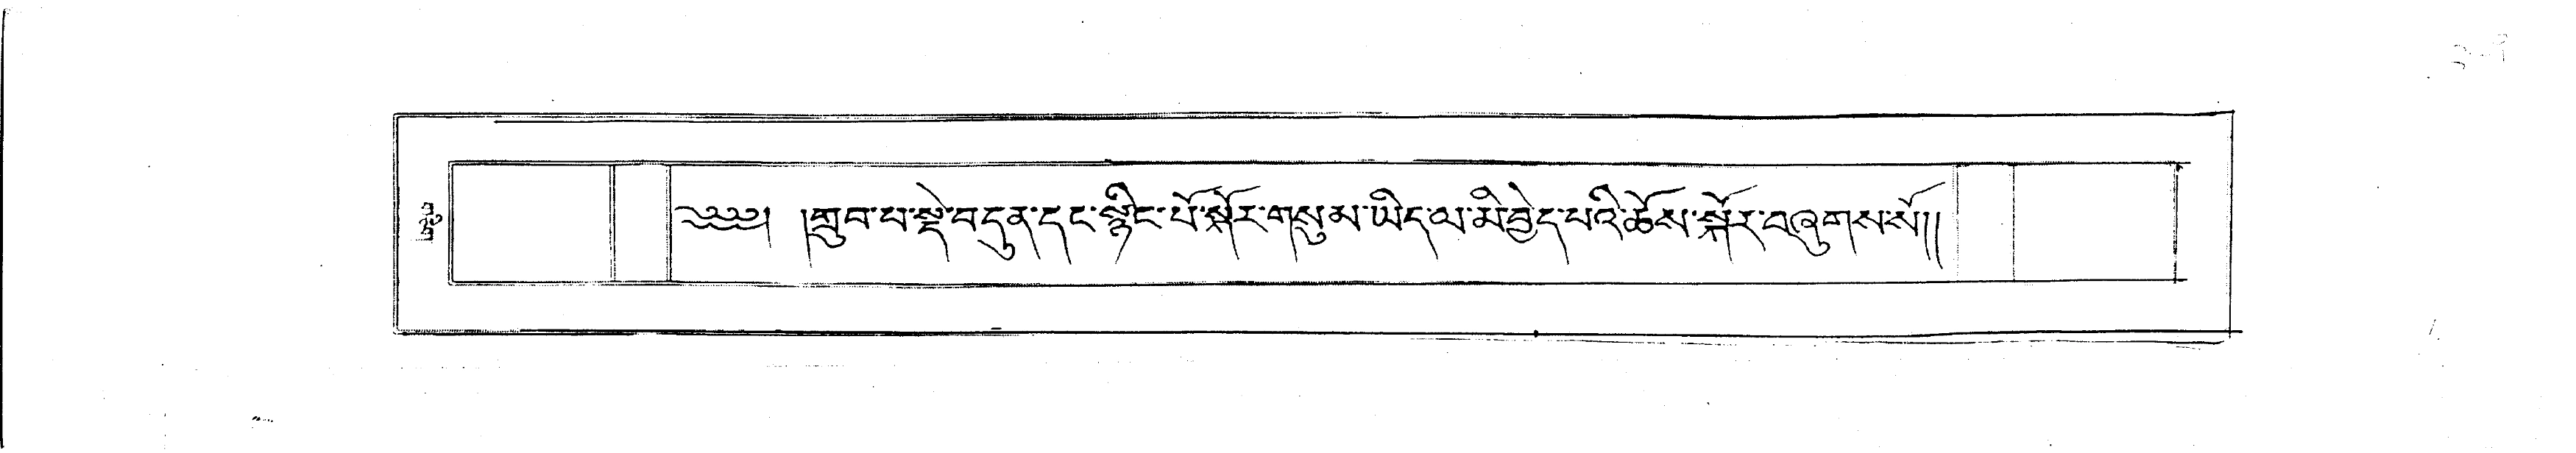 ༄༅༅། །གྲུབ་པ་སྡེ་བདུན་དང་སྙིང་པོ་སྐོར་གསུམ་ཡིད་ལ་མི་བྱེད་པའི་ཆོས་སྐོར་བཞུགས་སོ།།